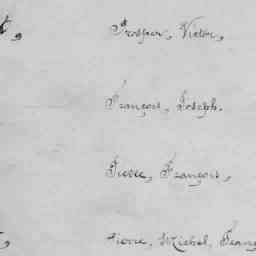 t, Prosper, Victor,
François, Joseph.
Pierre, François,
Pierre, Michel, Fran